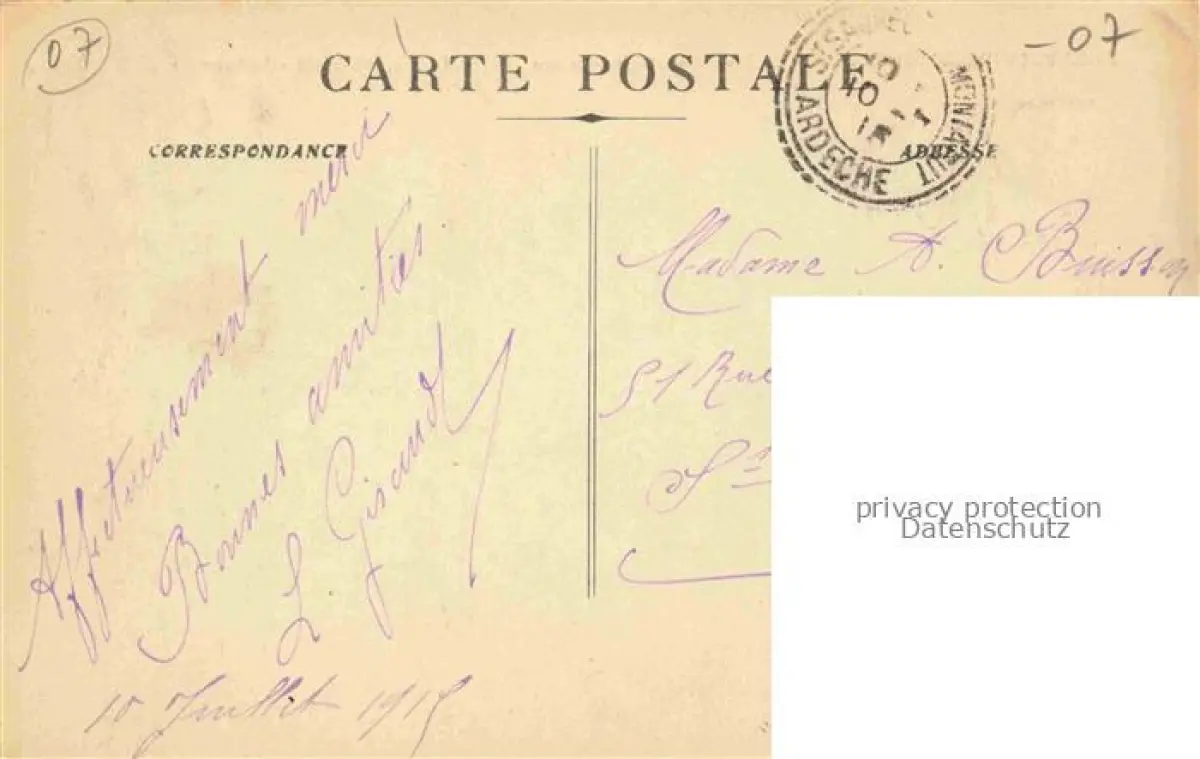 07
-07
CARTE POSTALE
CORRESPONDANCE
ADRESSE
MONTAGUT
ARDECHE
10
Affectueusement merci
Bonnes amitiés.
L. Giraud
10 Juillet 1915
Madame A. Buisson
51 Rue
St
privacy protection
Datenschutz